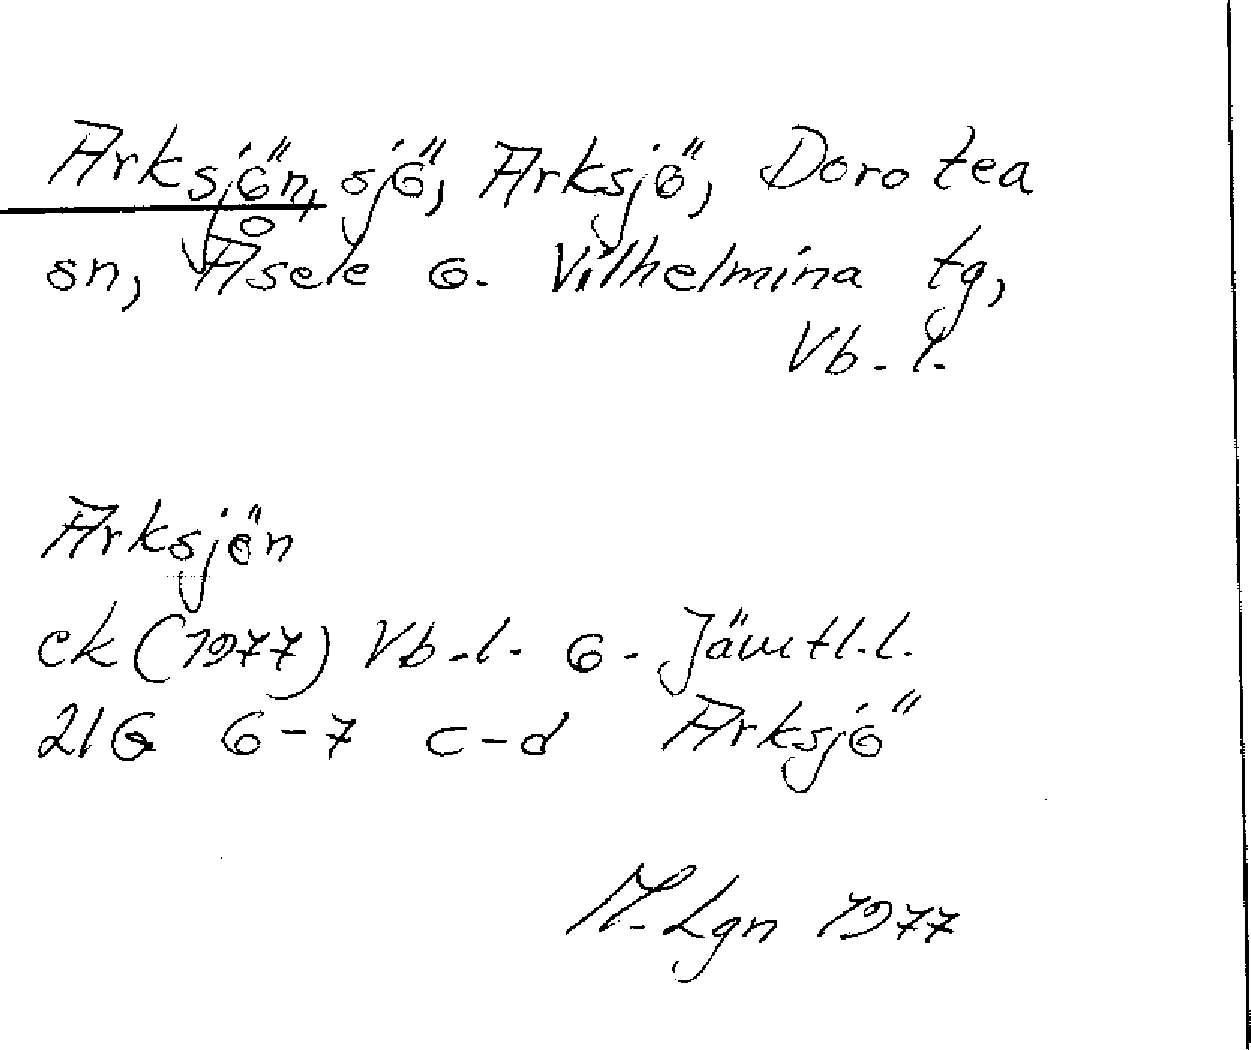 Arksjön, sjö, Arksjö, Dorotea
sn, Åsele o. Vilhelmina tg,
Vb. l.
Arksjön
ek (1977) Vb. l. o. Jämtl. l.
21G 6-7 c-d Arksjö
M. Lgn 1977